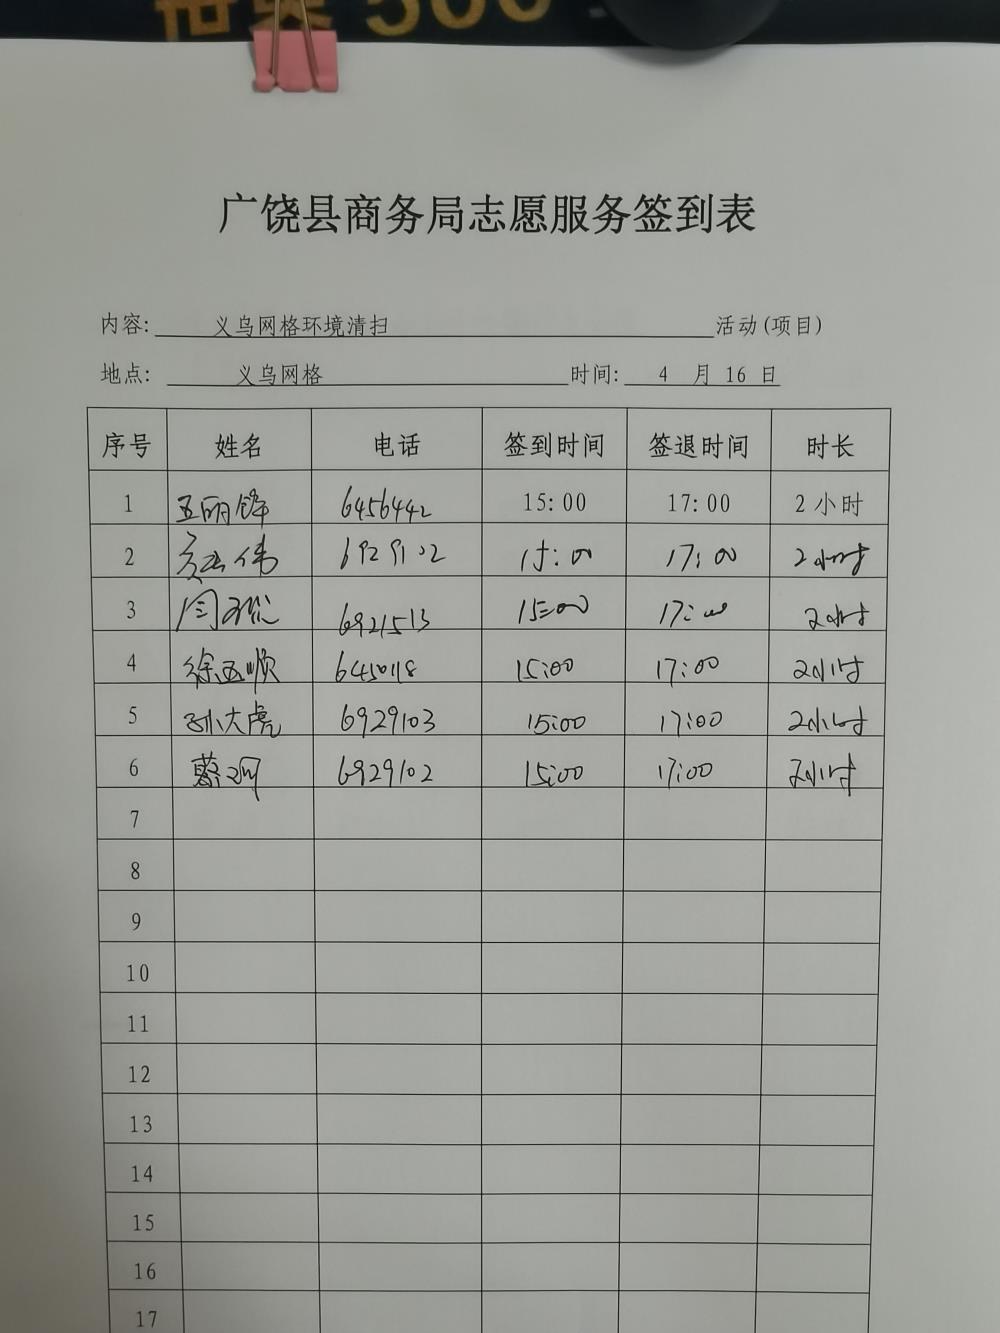 500
广饶县商务局志愿服务签到表
内容: 义乌网格环境清扫 活动(项目)
地点: 义乌网格 时间: 4 月 16 日
序号 姓名 电话 签到时间 签退时间 时长
1 6456442 15:00 17:00 2小时
2 伟 6929102 15:00 17:00 2小时
3 6921513 15:00 17:00 2小时
4 徐 顺 6450118 15:00 17:00 2小时
5 孙大虎 6929103 15:00 17:00 2小时
6 6929102 15:00 17:00 2小时
7
8
9
10
11
12
13
14
15
16
17